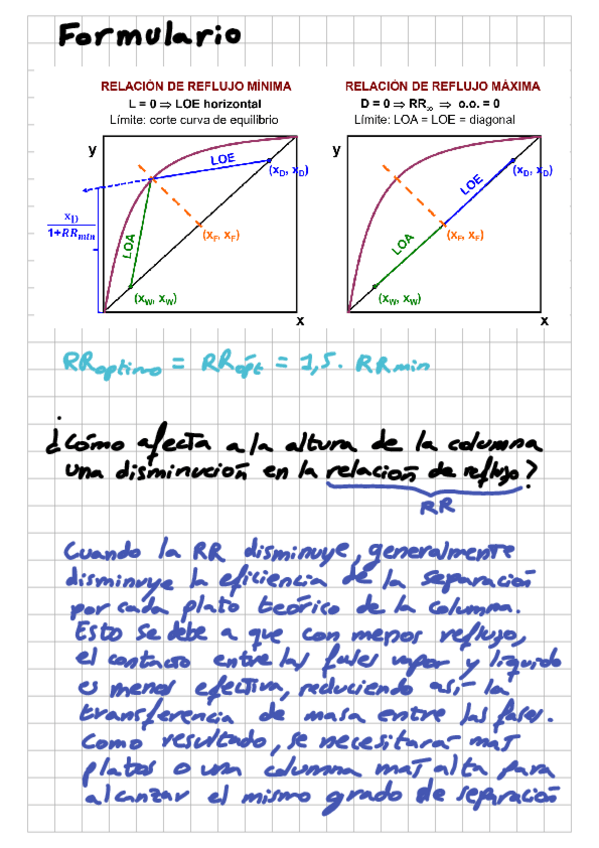 Formulario
RELACIÓN DE REFLUJO MÍNIMA
L = 0 ⇒ LOE horizontal
Límite: corte curva de equilibrio
y
LOE
(x_D, x_D)
x_D
1+RR_min
(x_F, x_F)
LOA
(x_W, x_W)
x
RELACIÓN DE REFLUJO MÁXIMA
D = 0 ⇒ RR_∞ ⇒ o.o. = 0
Límite: LOA = LOE = diagonal
y
(x_D, x_D)
LOE
(x_F, x_F)
LOA
(x_W, x_W)
x
RR optimo = RR ópt = 1,5 · RR min
¿Cómo afecta a la altura de la columna
una disminución en la relación de reflujo?
RR
Cuando la RR disminuye, generalmente
disminuye la eficiencia de la separación
por cada plato teórico de la columna.
Esto se debe a que con menos reflujo,
el contacto entre las fases vapor y líquido
es menos efectiva, reduciendo así la
transferencia de masa entre las fases.
Como resultado, se necesitará mas
platos o una columna mas alta para
alcanzar el mismo grado de separación